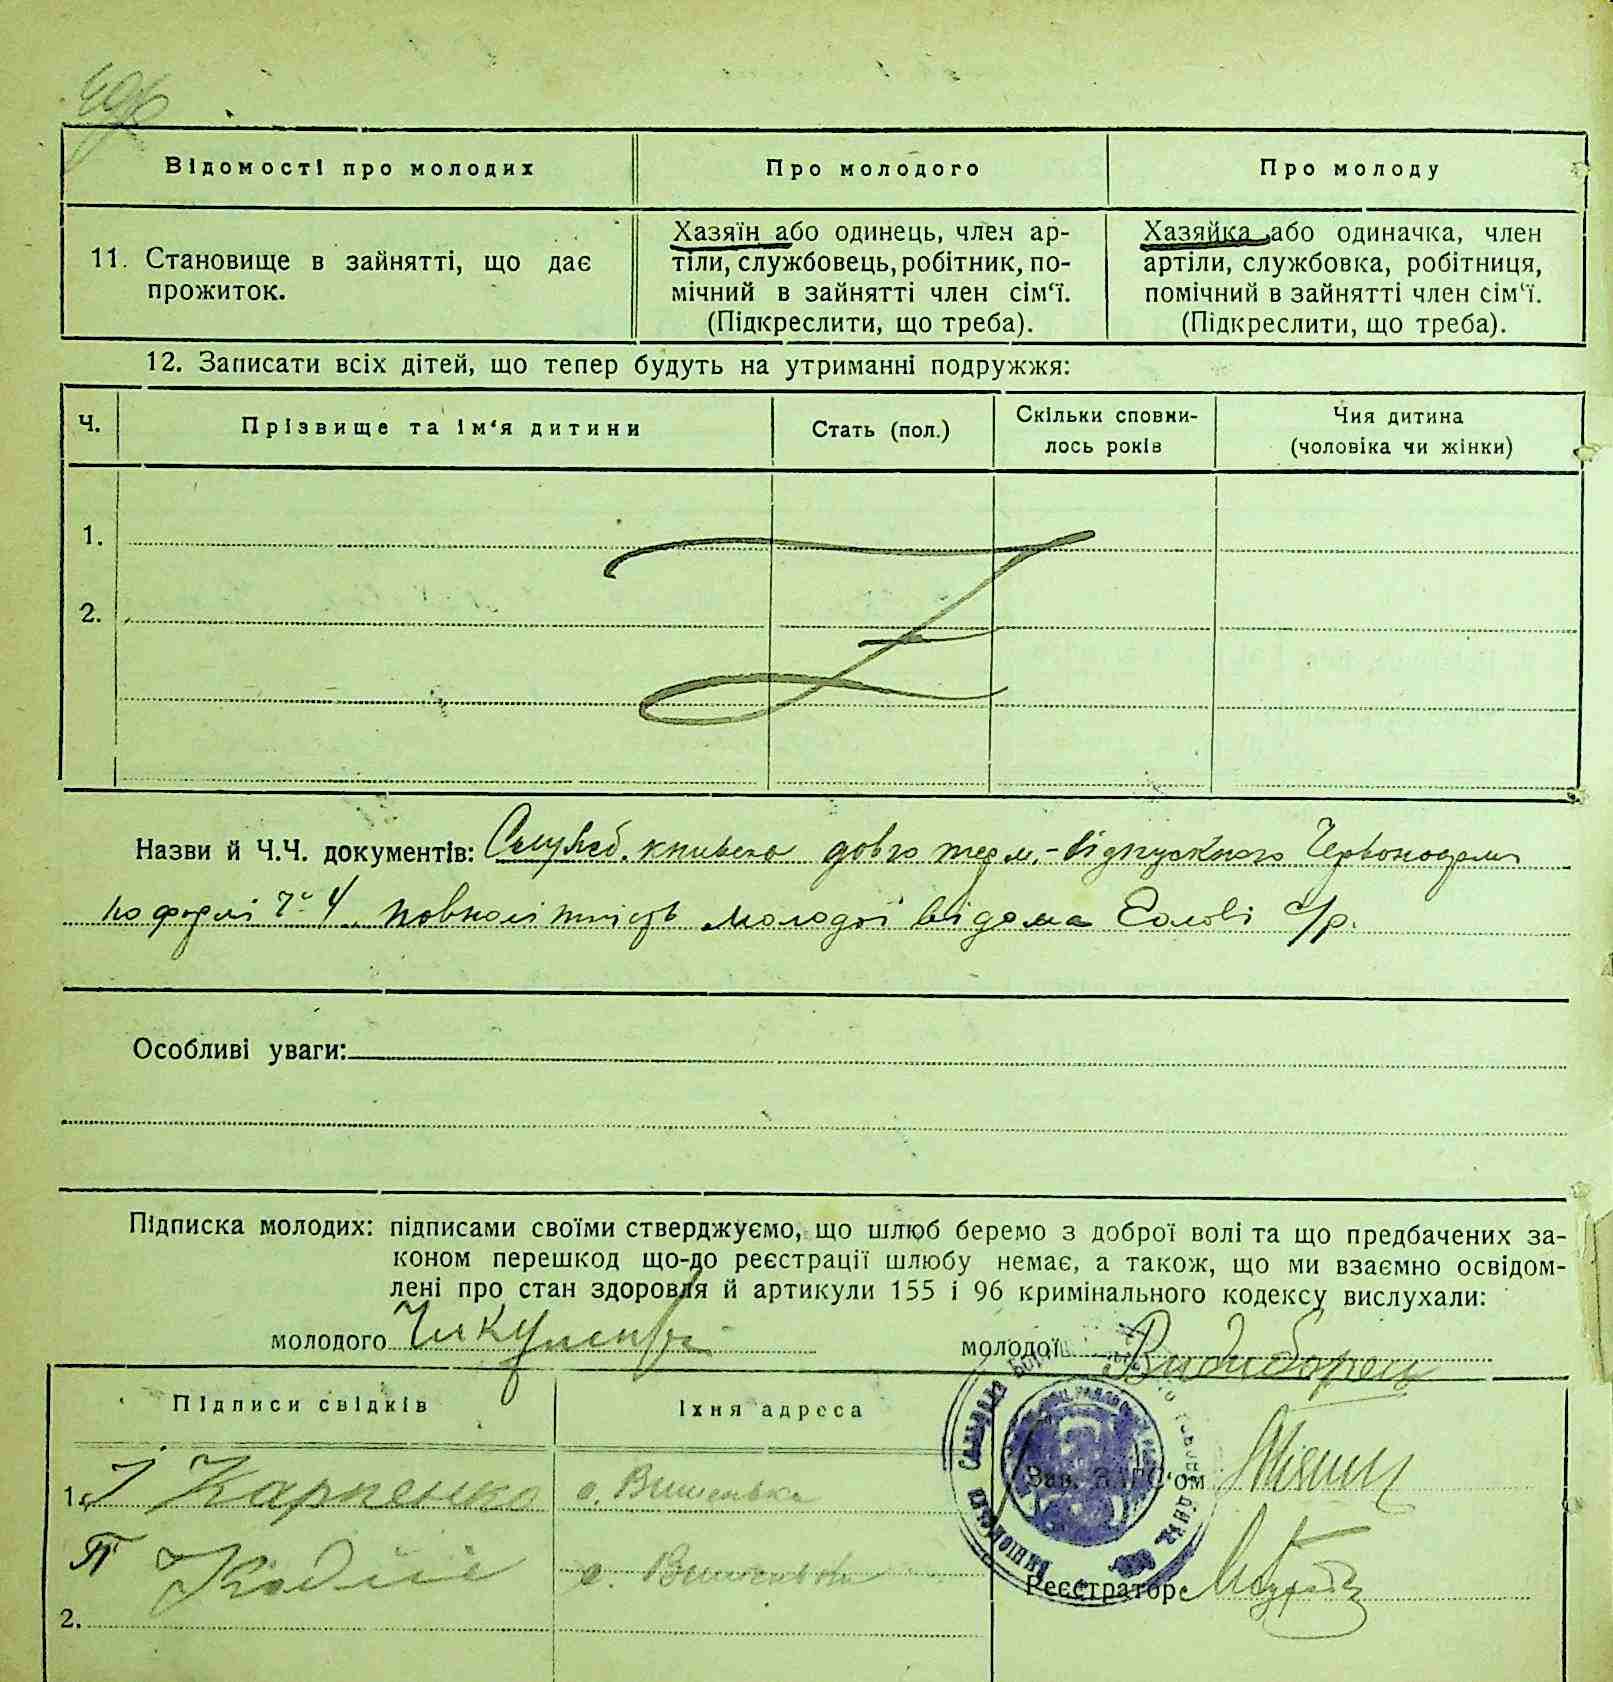 Відомості про молодих
Про молодого
Про молоду
11. Становище в зайнятті, що дає
прожиток.
Хазяїн або одинець, член ар-
тіли, службовець, робітник, по-
мічний в зайнятті член сім'ї.
(Підкреслити, що треба).
Хазяйка або одиначка, член
артіли, службовка, робітниця,
помічний в зайнятті член сім'ї.
(Підкреслити, що треба).
12. Записати всіх дітей, що тепер будуть на утриманні подружжя:
Ч.
Прізвище та ім'я дитини
Стать (пол.)
Скільки сповни-
лось років
Чия дитина
(чоловіка чи жінки)
1.
2.
Назви й Ч.Ч. документів: Служб. книжка довго терм.-відпускного
по формі Ч 4. повнолітність молодої відома Голові с/р.
Особливі уваги:
Підписка молодих: підписами своїми стверджуємо, що шлюб беремо з доброї волі та що предбачених за-
коном перешкод що-до реєстрації шлюбу немає, а також, що ми взаємно освідом-
лені про стан здоровля й артикули 155 і 96 кримінального кодексу вислухали:
молодого
молодої Видиборець
Підписи свідків
Їхня адреса
1. І Карпенко
с. Вишенька
Зав. ЗАГС'ом
П
с. Вишенька
Реєстратор
2.